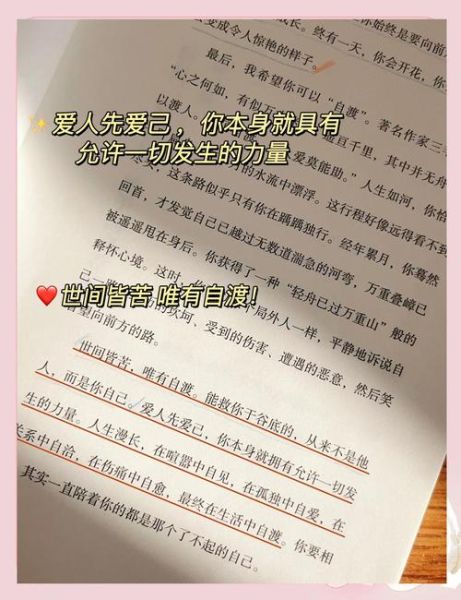 成长。终有一天，你会开花，你
变成令人惊艳的样子。
最后，我希望你可以“自渡”。著名作家三
“心之何如，有似万
迢亘千里，其中并无舟
✨爱人先爱己，你本身就具有
以渡人。
爱莫能助。”人生如河，你恰
允许一切发生的力量
的水流中漂浮。这行程好像远得看不到
尽头，这条路似乎只有你在踽踽独行。经年累月，你蓦然
回首，才发觉自己已越过无数道湍急的河弯，万重叠嶂已
被遥遥甩在身后。你获得了一种“轻舟已过万重山”般的
释怀心境。这时，
个局外人一样，平静地诉说自
❤️世间皆苦 唯有自渡！
己一
的坎坷、受到的伤害、遭遇的恶意，然后笑
望向前方的路。
世间皆苦，唯有自渡。能救你于谷底的，从来不是他
人，而是你自己。爱人先爱己，你本身就拥有允许一切发
生的力量。人生漫长，在喧嚣中自见，在孤独中自爱，在
关系中自洽，在伤痛中自愈，最终在生活中自渡。你要相
其实一直陪着你的都是那个了不起的自己。